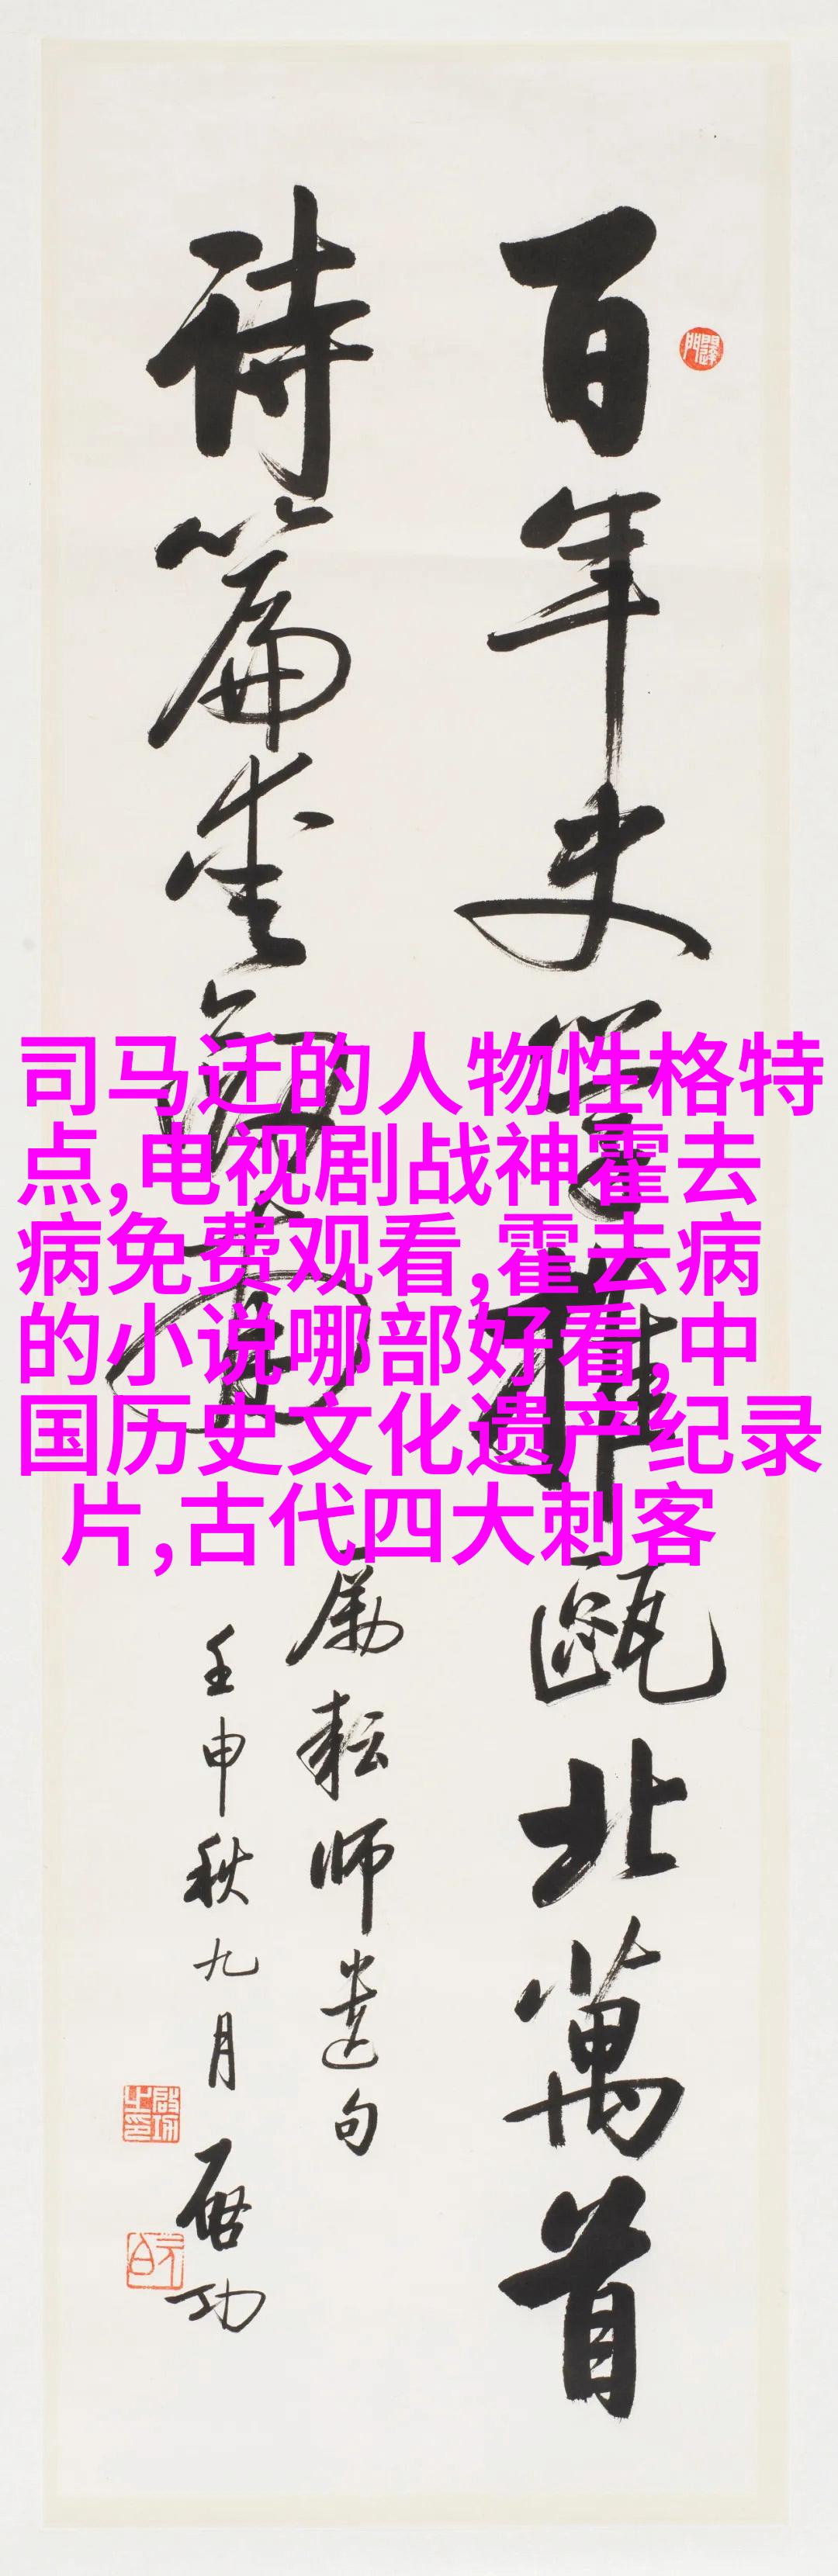 百年史学推瓯北萬首
诗篇爱剑南
励耘师遗句
壬申秋九月 启功
啟功之印
元白
司马迁的人物性格特
点,电视剧战神霍去
病免费观看,霍去病
的小说哪部好看,中
国历史文化遗产纪录
片,古代四大刺客